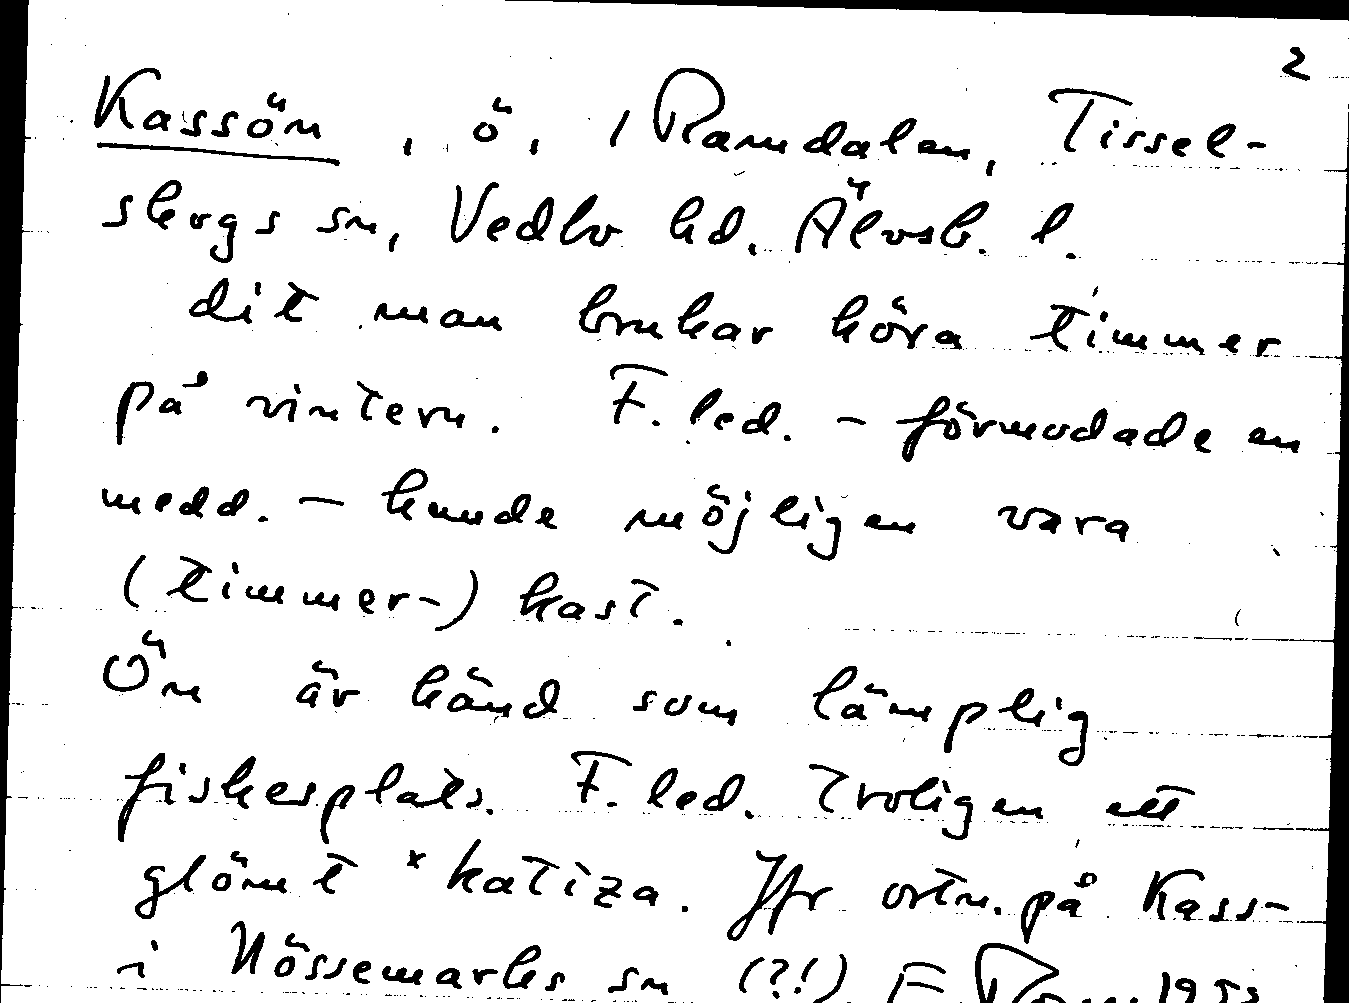 2
Kassön, ö, i Ramdalen, Tissel-
skogs sn, Vedbo hd. Älvsb. l.
dit man brukar köra timmer
på vintern. F. led. - förmodade en
medd. - kunde möjligen vara
(timmer-) kast.
Ön är känd som lämplig
fiskeplats. F. led. Troligen ett
glömt *katiza. Jfr ortn. på Kass-
i Nössemarks sn (?!)